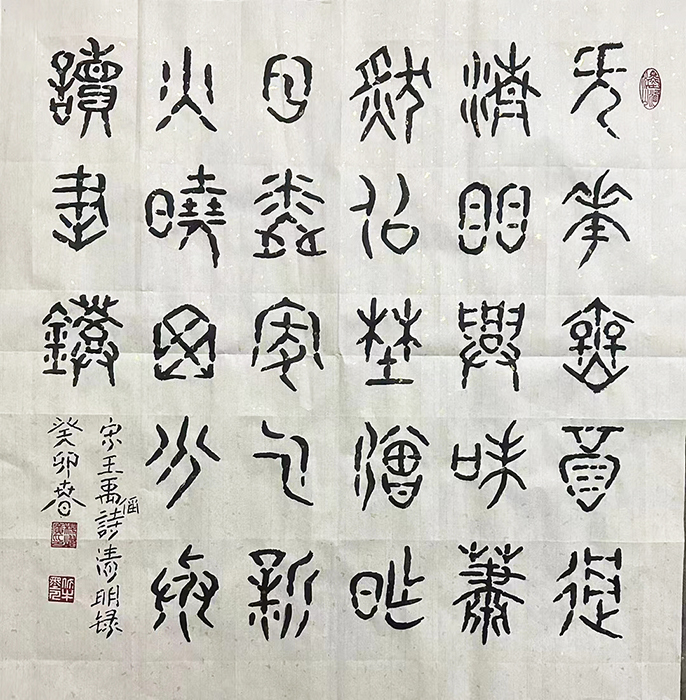 无花無酒過
清明興味蕭
然似野僧昨
日鄰家乞新
火曉窗分與
讀書燈
宋王禹偁詩清明録
癸卯春